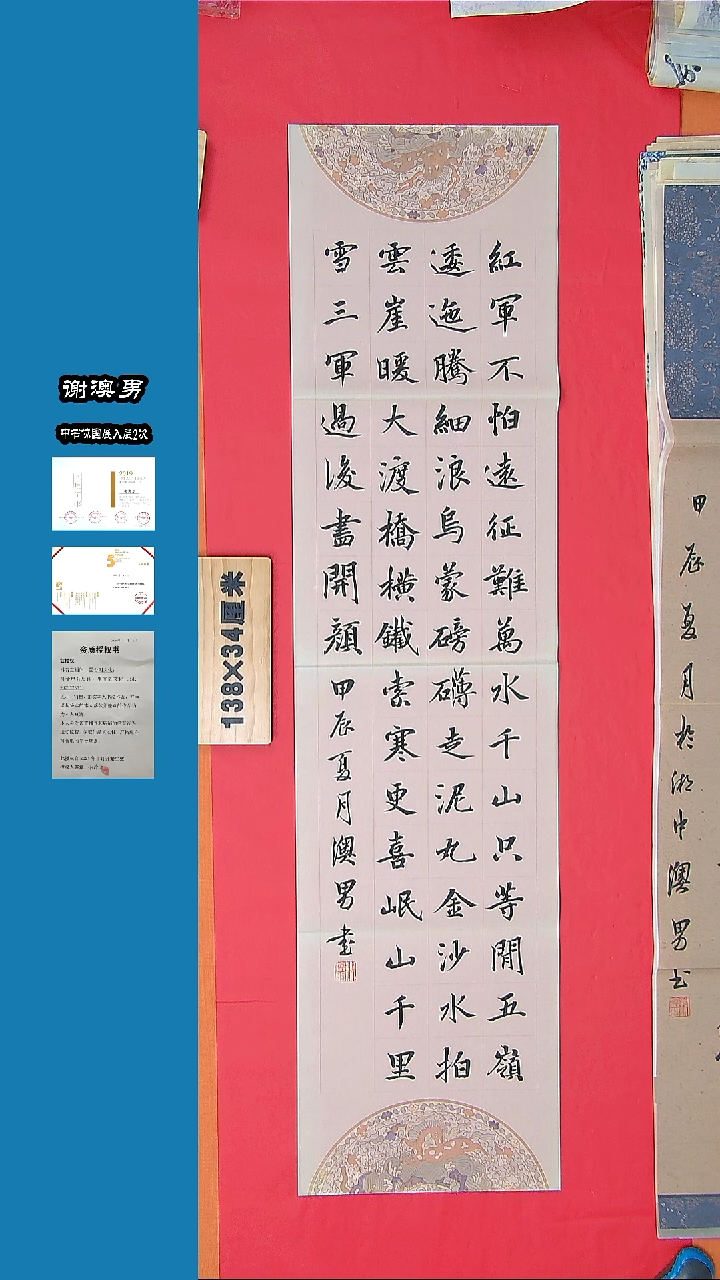 紅軍不怕遠征難萬水千山只等閒五嶺
逶迤騰細浪烏蒙磅礴走泥丸金沙水拍
雲崖暖大渡橋橫鐵索寒更喜岷山千里
雪三軍過後盡開顏甲辰夏月澳男書
甲辰夏月於湘中澳男书
138×34厘米
谢澳男
中书协国展入展2次